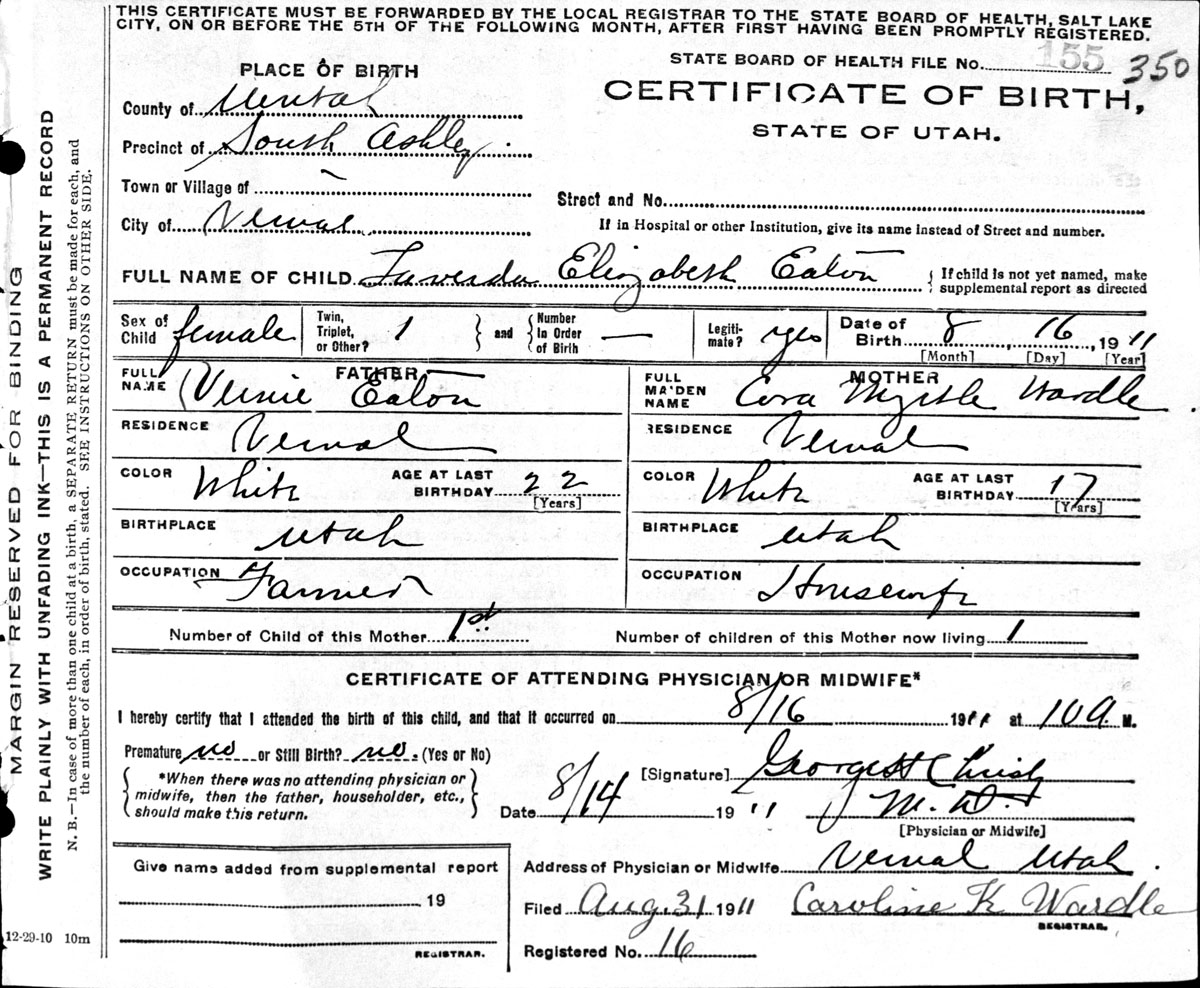 THIS CERTIFICATE MUST BE FORWARDED BY THE LOCAL REGISTRAR TO THE STATE BOARD OF HEALTH, SALT LAKE
CITY, ON OR BEFORE THE 5TH OF THE FOLLOWING MONTH, AFTER FIRST HAVING BEEN PROMPTLY REGISTERED.
STATE BOARD OF HEALTH FILE No. 155 350
PLACE OF BIRTH
CERTIFICATE OF BIRTH,
STATE OF UTAH.
County of Uintah
Precinct of South Ashley
Town or Village of
Street and No.
City of Vernal
If in Hospital or other Institution, give its name instead of Street and number.
FULL NAME OF CHILD Elizabeth Eaton { If child is not yet named, make
supplemental report as directed
Sex of Child female Twin, Triplet, or Other? 1 } and { Number In Order of Birth — Legiti-mate? yes Date of Birth 8 16, 1911
[Month] [Day] [Year]
FATHER MOTHER
FULL NAME Vernie Eaton FULL MAIDEN NAME Cora Myrtle Wardle
RESIDENCE Vernal RESIDENCE Vernal
COLOR White AGE AT LAST BIRTHDAY 22 [Years] COLOR White AGE AT LAST BIRTHDAY 17 [Years]
BIRTHPLACE Utah BIRTHPLACE Utah
OCCUPATION Farmer OCCUPATION Housewife
Number of Child of this Mother 1st Number of children of this Mother now living 1
CERTIFICATE OF ATTENDING PHYSICIAN OR MIDWIFE*
I hereby certify that I attended the birth of this child, and that it occurred on 8/16 1911 at 10 a M.
Premature no or Still Birth? no. (Yes or No)
{ *When there was no attending physician or
midwife, then the father, householder, etc.,
should make this return. }
[Signature] George H Christy
Date 8/14 1911 M.D.
[Physician or Midwife]
Give name added from supplemental report
19
REGISTRAR.
Address of Physician or Midwife Vernal Utah
Filed Aug. 31 1911 Caroline K Wardle
REGISTRAR.
Registered No. 16
12-29-10 10m
MARGIN RESERVED FOR BINDING
WRITE PLAINLY WITH UNFADING INK—THIS IS A PERMANENT RECORD
N. B.—In case of more than one child at a birth, a SEPARATE RETURN must be made for each, and
the number of each, in order of birth, stated. SEE INSTRUCTIONS ON OTHER SIDE.